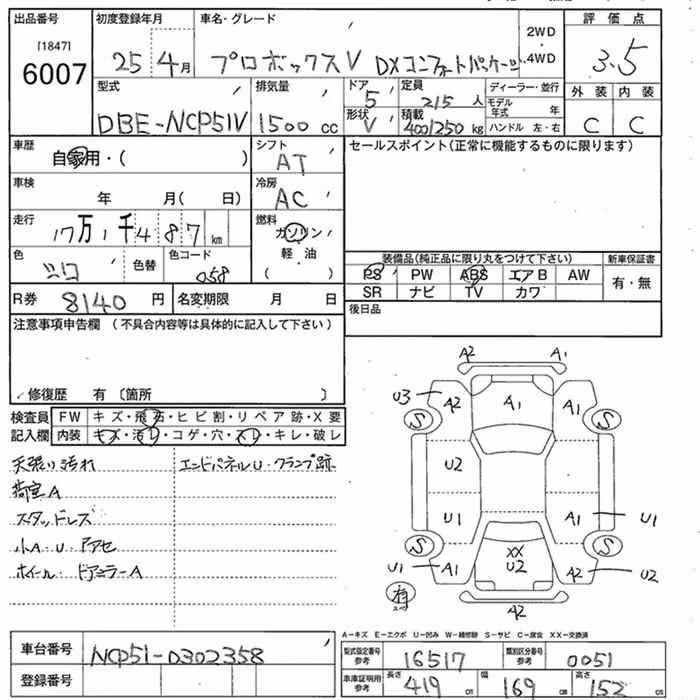 出品番号 初度登録年月 車名・グレード 2WD・4WD 評価点
[1847] 6007
25 4月 プロボックスV DXコンフォートパッケージ 3.5
型式 排気量 ドア 5 定員 2/5人 ディーラー・並行 外装 内装
モデル年式 年
DBE-NCP51V 1500cc 形状 V 積載 400/250kg ハンドル 左・右 C C
車歴 自家用・( ) シフト AT セールスポイント(正常に機能するものに限ります)
車検 年 月( 日) 冷房 AC
走行 17万1千487km 燃料 ガソリン
軽・油
( )
色 シロ 色替 色コード 058
装備品(純正品に限り丸をつけて下さい) 新車保証書
PS PW ABS エアB AW 有・無
SR ナビ TV カワ
R券 8140円 名変期限 月 日
後日品
注意事項申告欄 (不具合内容等は具体的に記入して下さい)
修復歴 有〔箇所 〕
検査員 FW キズ・飛石・ヒビ割・リペア跡・X要
記入欄 内装 キズ・汚レ・コゲ・穴・スレ・キレ・破レ
天張り汚れ エンドパネルU・クランプ跡
荷室A
スタッドレス
小A・U・アセ
ホイール・ドアミラーA
A2 A1
U3 A2 A1 A1
S S
U2
U1 A1 U1
S S
XX
U1 A1 U2 A2 U2
有
A2
A-キズ E-エクボ U-凹み W-補修跡 S-サビ C-腐食 XX-交換済
車台番号 NCP51-0302358
型式指定番号 参考 16517 類別区分番号 参考 0051
登録番号
車庫証明用 参考 長さ 419cm 幅 169cm 高さ 152cm